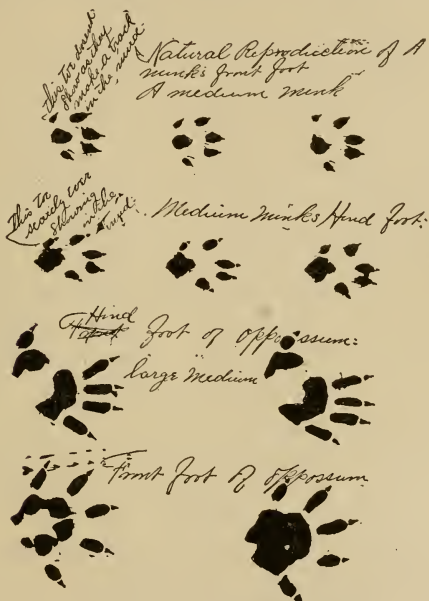 this toe doesnt
show as they
make a track
in the mud.
Natural Reproduction of A
mink's front foot
A medium mink
this to
scarcely ever
showing
in the
mud.
Medium minks Hind foot:
Hind
foot of oppossum:
large medium
Front foot of oppossum